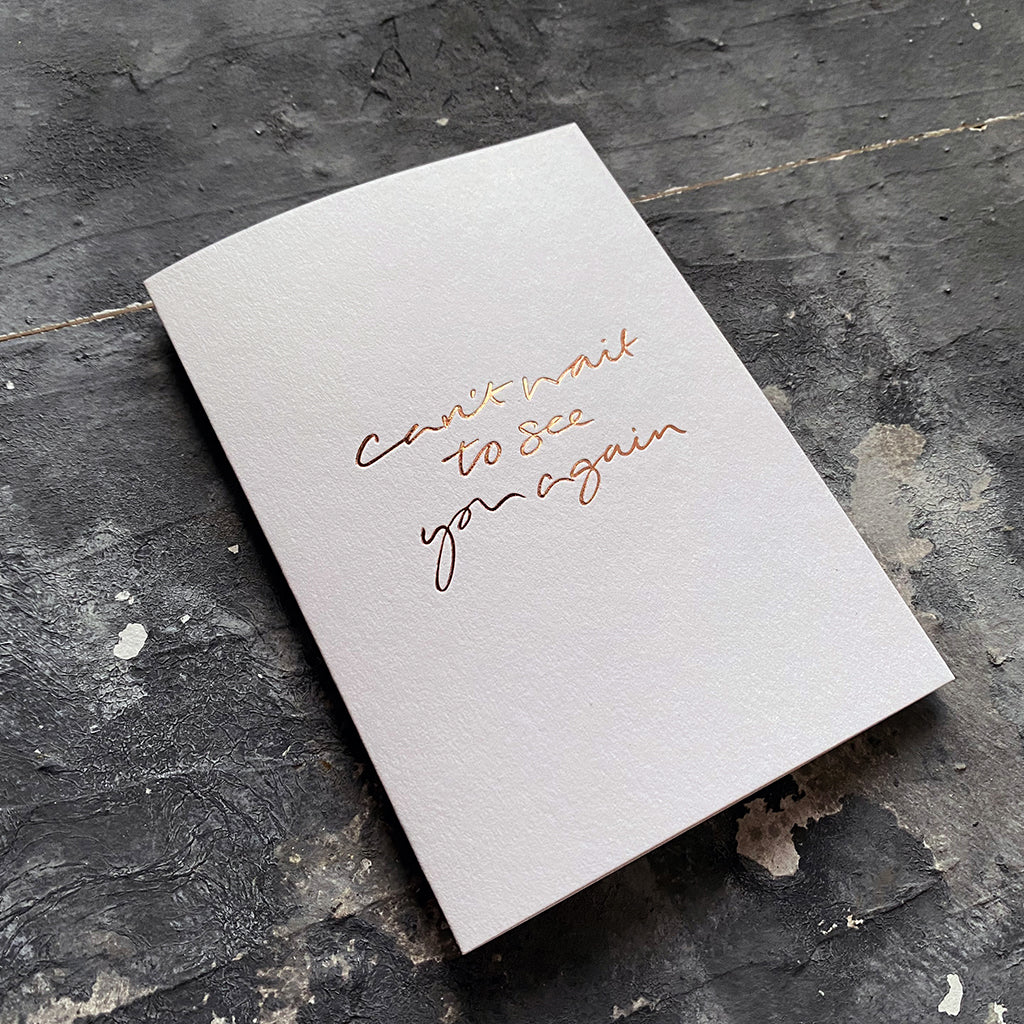 can't wait
to see
you again